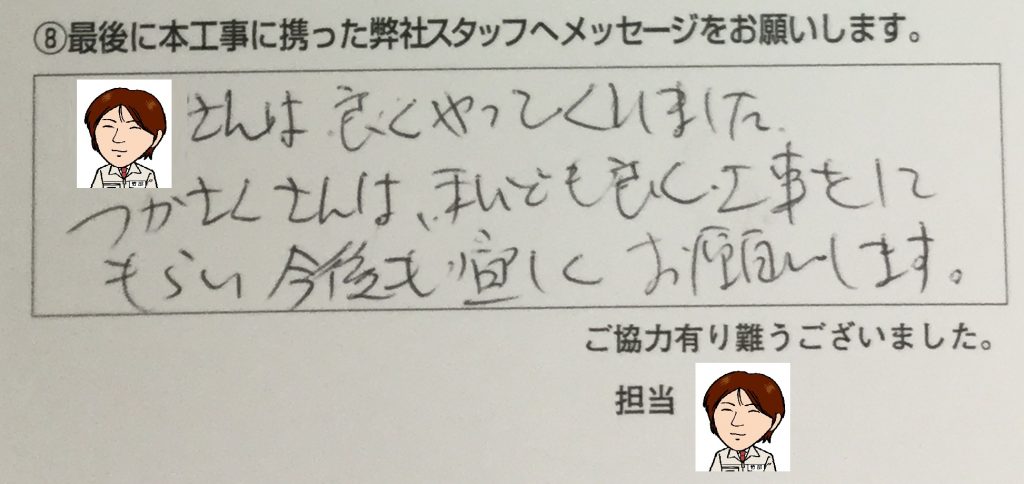 ⑧最後に本工事に携った弊社スタッフへメッセージをお願いします。
さんは良くやってくれました
つかさくさんは、まいども良く工事をして
もらい今後も宜しくお願いします。
ご協力有り難うございました。
担当